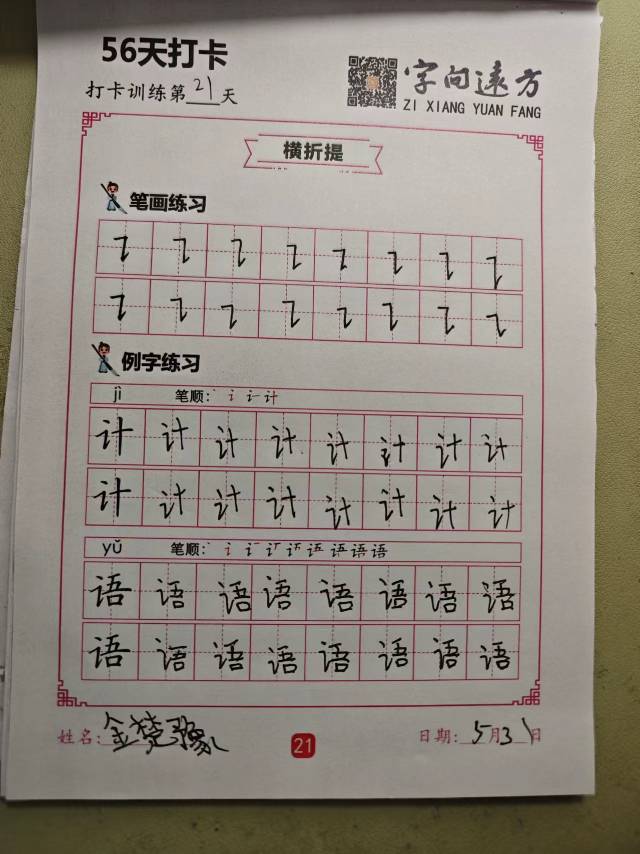 56天打卡
打卡训练第21天
字向遠方
ZI XIANG YUAN FANG
横折提
笔画练习
例字练习
jì 笔顺: 计
计 计 计 计 计 计 计 计
计 计 计 计 计 计 计 计
yǔ 笔顺: 语 语
语 语 语 语 语 语 语 语
语 语 语 语 语 语 语 语
姓名: 金楚豫 21 日期: 5月31日